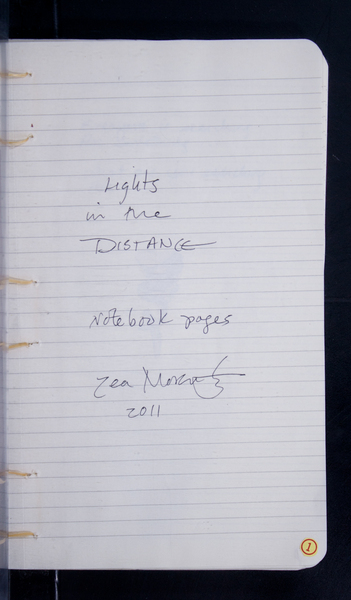 Lights
in the
DISTANCE
Notebook pages
Zea Morvitz
2011
1